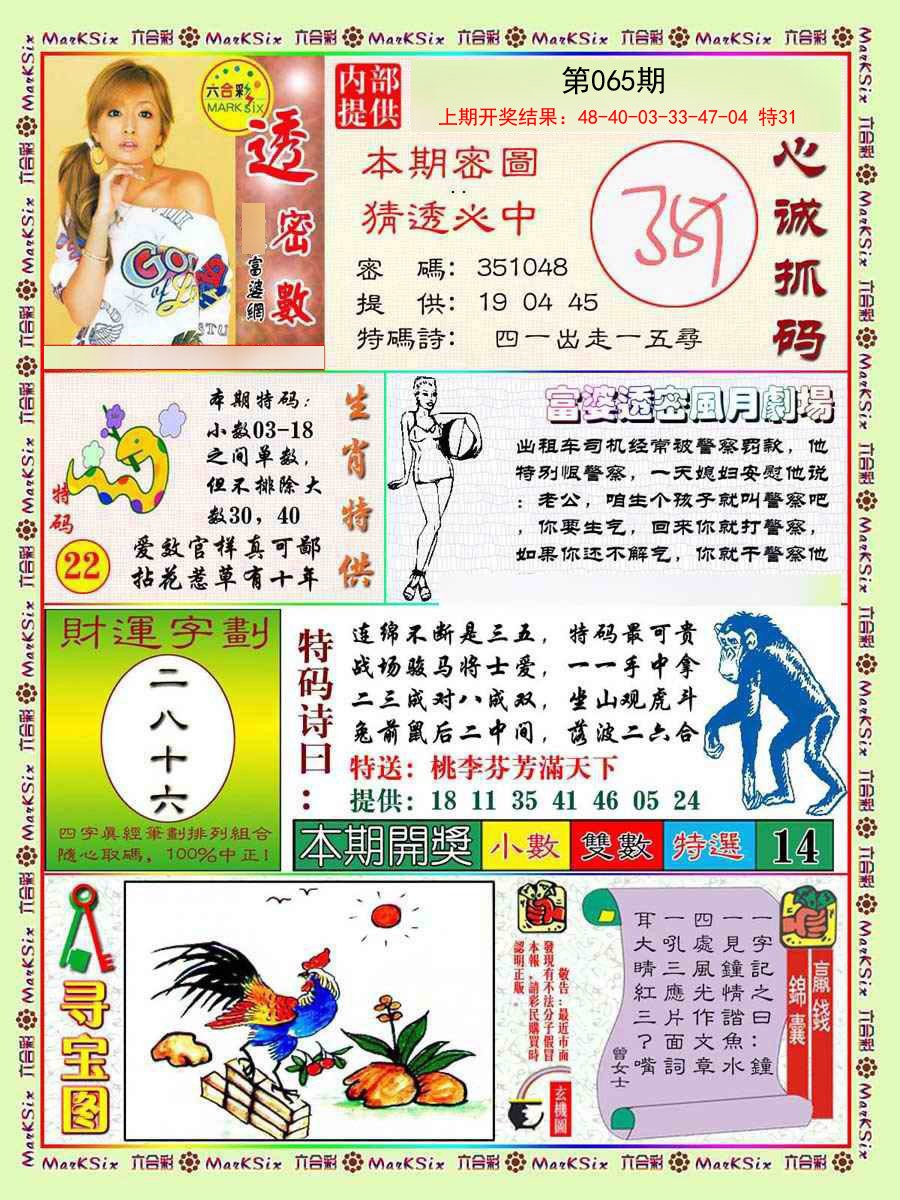 MarKSix 六合彩
六合彩
MARK six
透密數
富婆網
内部
提供
第065期
上期开奖结果：48-40-03-33-47-04 特31
本期密圖
猜透必中
密 碼：351048
提 供：19 04 45
特碼詩： 四一出走一五尋
心诚抓码
本期特码：
小数03-18
之间单数，
但不排除大
数30，40
特码
22
爱敛官样真可鄙
拈花惹草有十年
生肖特供
富婆透密風月劇場
出租车司机经常被警察罚款，他
特别恨警察，一天媳妇安慰他说
：老公，咱生个孩子就叫警察吧
，你要生气，回来你就打警察，
如果你还不解气，你就干警察他
財運字劃
二八十六
四字真經筆劃排列組合
隨心取碼，100%中正！
特码诗曰：
连绵不断是三五，特码最可贵
战场骏马将士爱，一一手中拿
二三成对八成双，坐山观虎斗
兔前鼠后二中间，落波二六合
特送：桃李芬芳滿天下
提供：18 11 35 41 46 05 24
本期開獎 小數 雙數 特選 14
寻宝图
敬告：最近市面
發現有不法分子假冒
本報，請彩民購買時
認明正版。
玄機圖
一字記之曰：鐘
一見鐘情諧魚水
四處風光作文章
一吼三應片面詞
耳大晴紅三？嘴
曾女士
贏錢
錦囊